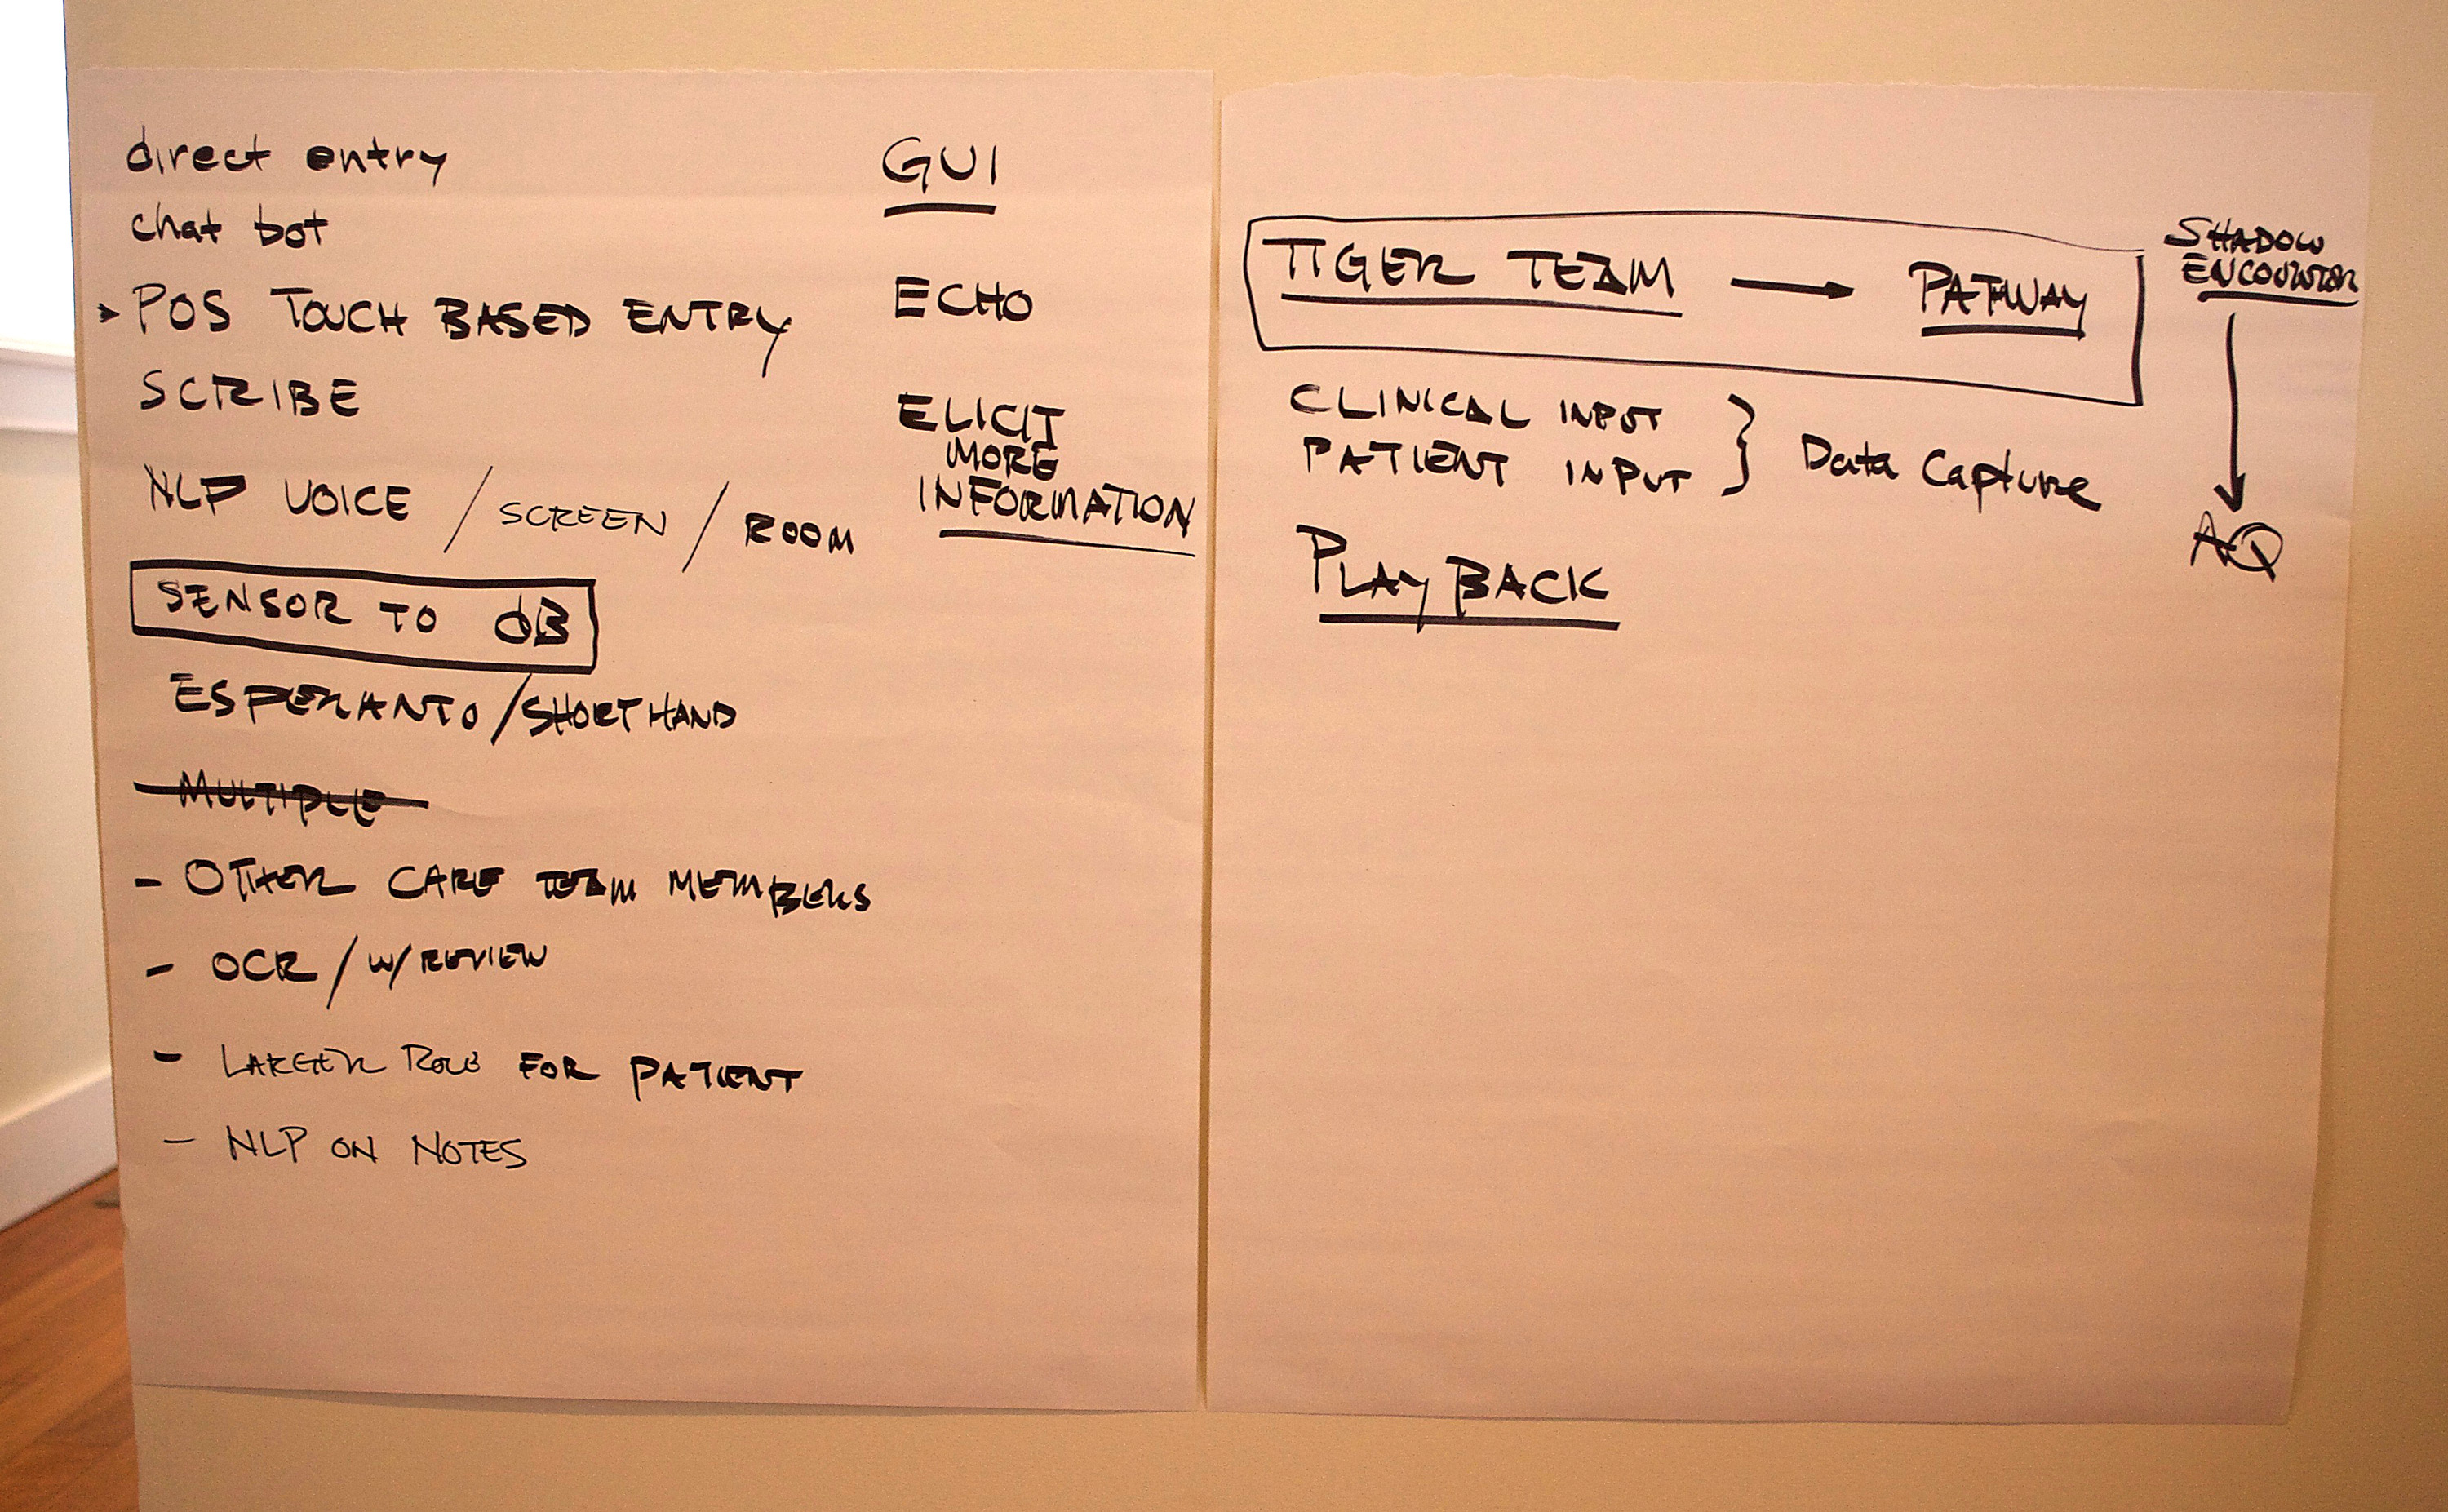 direct entry
chat bot
POS TOUCH BASED ENTRY
SCRIBE
NLP VOICE / SCREEN / ROOM
SENSOR TO dB
ESPERANTO/SHORTHAND
MULTIPLE
- OTHER CARE TEAM MEMBERS
- OCR / W/ REVIEW
- LARGER ROLE FOR PATIENT
- NLP ON NOTES
GUI
ECHO
ELICIT
MORE
INFORMATION
TIGER TEAM → PATWAY
CLINICAL INPUT
PATIENT INPUT } Data Capture
PLAYBACK
SHADOW
ENCOUNTER
AQ